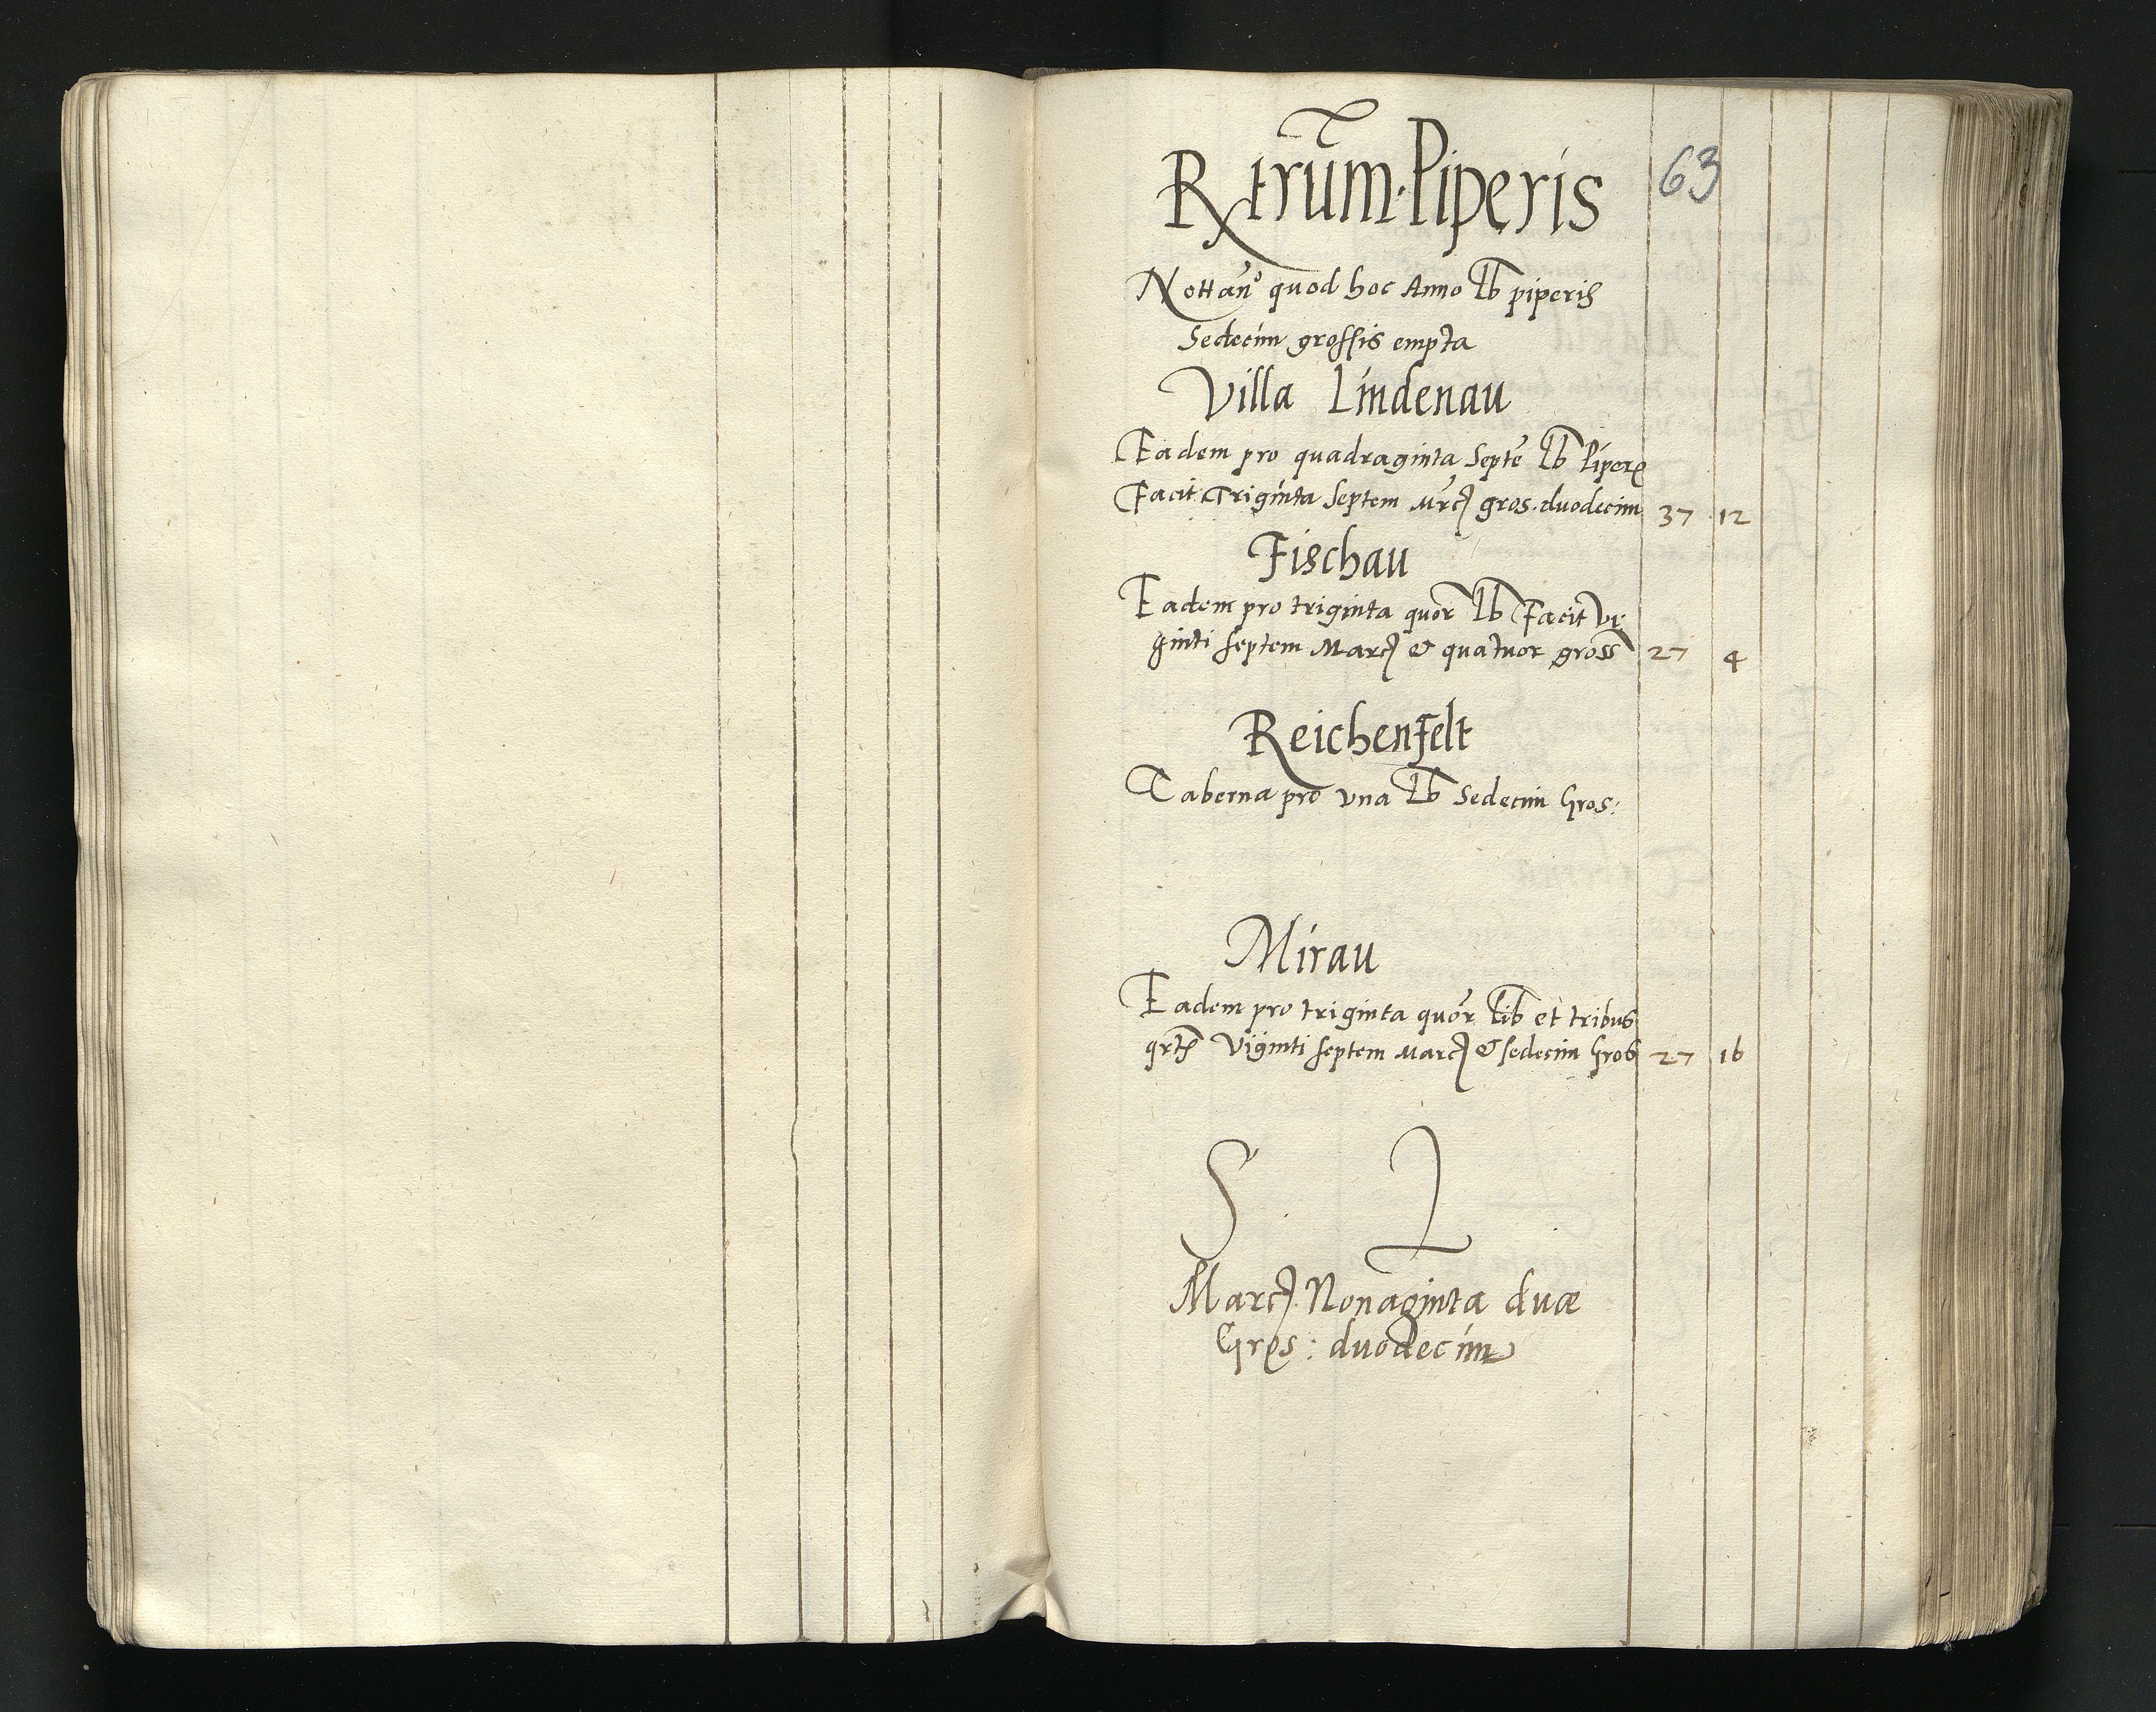 Rxtrūm Piperis 63
Nottan̄º quod hoc Anno lb piperis
Sedecim grossis empta
Villa Lindenau
Eadem pro quadraginta Septē lb Piperis
Facit Triginta Septem Mrcs gros. duodecim 37 12
Fischau
Eadem pro triginta quor lb Facit Vi:
ginti septem Marcs & quatuor gross 27 4
Reichenfelt
Taberna pro vna lb Sedecim Gros:
Mirau
Eadem pro triginta quor lib et tribus
qrts Viginti septem Marcs & sedecim Gros 27 16
S L
Marcs. Nonaginta duæ
Gros: duodecim